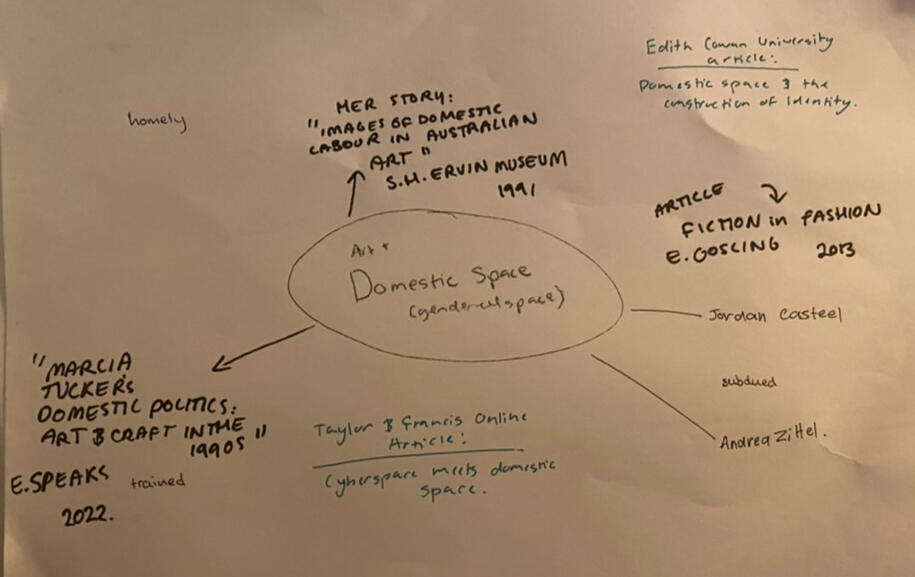 Edith Cowan University
article:
Domestic space & the
construction of Identity.
homely
HER STORY:
"IMAGES OF DOMESTIC
LABOUR IN AUSTRALIAN
ART"
S.H. ERVIN MUSEUM
1991
ARTICLE
FICTION in FASHION
E. GOSLING 2013
Art +
Domestic Space
(gendered space)
Jordan Casteel
subdued
Andrea Zittel.
"MARCIA
TUCKER'S
DOMESTIC POLITICS:
ART & CRAFT IN THE
1990S"
E. SPEAKS
trained
2022.
Taylor & Francis Online
Article:
Cyberspace meets domestic
space.